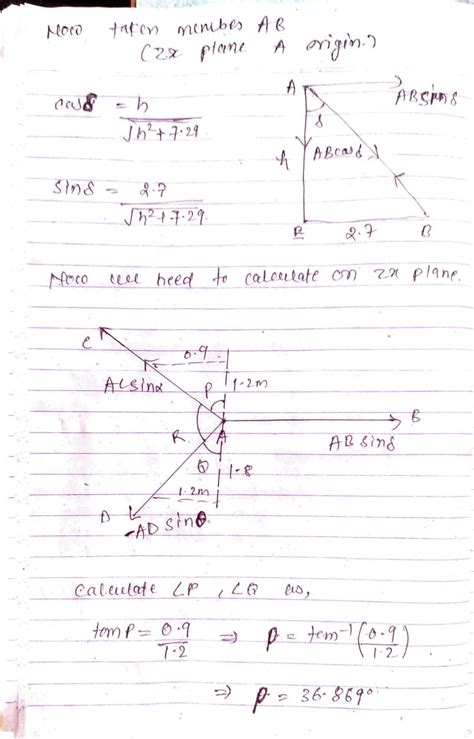 Now taken member AB
(zx plane A origin.)
cosδ = h / √h²+7.29
A
ABsinδ
δ
h
ABcosδ
sinδ = 2.7 / √h²+7.29
B
2.7
B
Now we need to calculate on zx plane.
C
0.9
ACsinα
P
1.2m
B
R
A
ABsinδ
Q
1.8
1.2m
D
ADsinθ
Calculate ∠P, ∠Q as,
tanP = 0.9/1.2 ⇒ P = tan⁻¹(0.9/1.2)
⇒ P = 36.869°